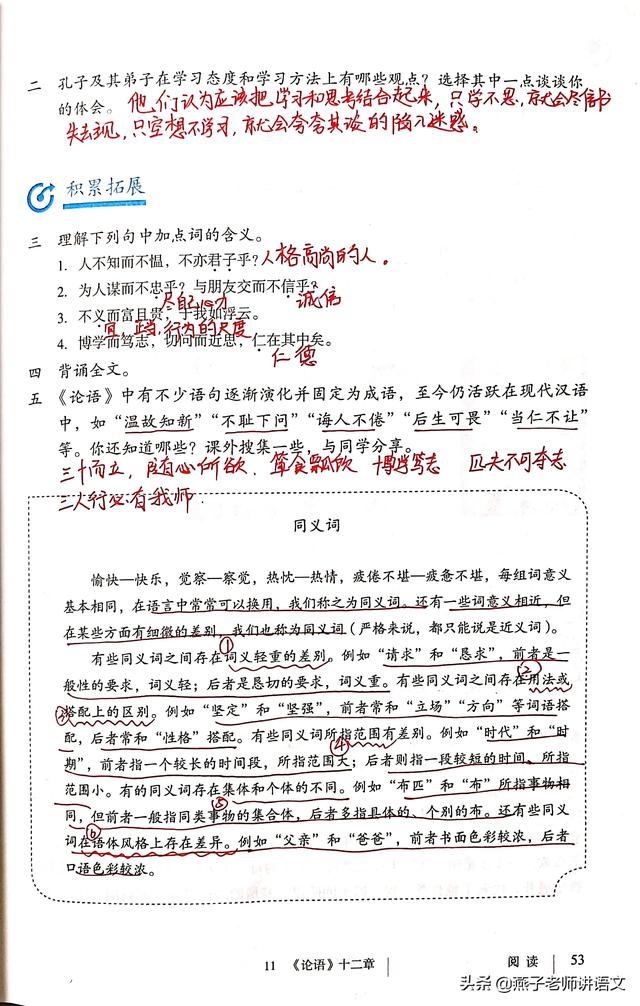 二 孔子及其弟子在学习态度和学习方法上有哪些观点？选择其中一点谈谈你
的体会。他们认为应该把学习和思考结合起来，只学不思，就会尽信书
失去主见，只空想不学习，就会夸夸其谈的陷入迷惑。
积累拓展
三 理解下列句中加点词的含义。
1. 人不知而不愠，不亦君子乎？人格高尚的人。
2. 为人谋而不忠乎？与朋友交而不信乎？
尽自己心力 诚信
3. 不义而富且贵，于我如浮云。
宜，正当，行为的尺度
4. 博学而笃志，切问而近思，仁在其中矣。
仁德
四 背诵全文。
五 《论语》中有不少语句逐渐演化并固定为成语，至今仍活跃在现代汉语
中，如“温故知新”“不耻下问”“诲人不倦”“后生可畏”“当仁不让”
等。你还知道哪些？课外搜集一些，与同学分享。
三十而立，随心所欲，箪食瓢饮 博学笃志 匹夫不可夺志
三人行必有我师
同义词
愉快—快乐，觉察—察觉，热忱—热情，疲倦不堪—疲惫不堪，每组词意义
基本相同，在语言中常常可以换用，我们称之为同义词。还有一些词意义相近，但
在某些方面有细微的差别，我们也称为同义词（严格来说，都只能说是近义词）。
①
有些同义词之间存在词义轻重的差别。例如“请求”和“恳求”，前者是一
②
般性的要求，词义轻；后者是恳切的要求，词义重。有些同义词之间存在用法或
③搭配上的区别。例如“坚定”和“坚强”，前者常和“立场”“方向”等词语搭
配，后者常和“性格”搭配。有些同义词所指范围有差别。例如“时代”和“时
④
期”，前者指一个较长的时间段，所指范围大；后者则指一段较短的时间，所指
范围小。有的同义词存在集体和个体的不同。例如“布匹”和“布”所指事物相
⑤
同，但前者一般指同类事物的集合体，后者多指具体的、个别的布。还有些同义
⑥
词在语体风格上存在差异。例如“父亲”和“爸爸”，前者书面色彩较浓，后者
口语色彩较浓。
11 《论语》十二章 阅读 53
头条@燕子老师讲语文